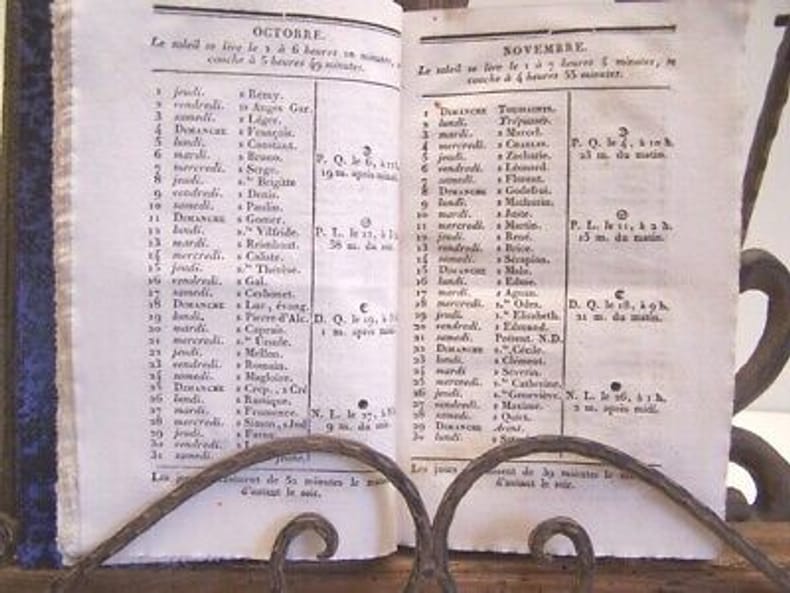 OCTOBRE.
Le soleil se lève le 1 à 6 heures 10 minutes,
couche à 5 heures 49 minutes.
1 jeudi. s Remy.
2 vendredi. ss Anges Gar.
3 samedi. s Léger.
4 DIMANCHE s François.
5 lundi. s Constant.
6 mardi. s Bruno.
7 mercredi. s Serge.
8 jeudi. s.te Brigitte
9 vendredi. s Denis.
10 samedi. s Paulin.
11 DIMANCHE s Gomer.
12 lundi. s Vilfride.
13 mardi. s
14 mercredi. s Caliste.
15 jeudi. s.te Thérèse.
16 vendredi. s Gal.
17 samedi. s Cerbonet.
18 DIMANCHE s Luc, évang.
19 lundi. s Pierre-d'Alc.
20 mardi. s Caprais.
21 mercredi. s.te Ursule.
22 jeudi. s Mellon.
23 vendredi. s Romain.
24 samedi. s Magloire.
25 DIMANCHE s Crép., s Cré
26 lundi. s Rustique.
27 mardi. s Frumence.
28 mercredi. s Simon, s Jud
29 jeudi.
30 vendredi.
31 samedi. Jeûne.
P. Q. le 6, à
19 m. après midi.
P. L. le 12, à
38 m. du
D. Q. le 19, à
1 m. après
N. L. le 27, à
9 m. du
Les jours de 52 minutes le
d'autant le soir.
NOVEMBRE.
Le soleil se lève le 1 à 7 heures 5 minutes, se
couche à 4 heures 55 minutes.
1 DIMANCHE TOUSSAINTS.
2 lundi. Trépassés.
3 mardi. s Marcel.
4 mercredi. s CHARLES.
5 jeudi. s Zacharie.
6 vendredi. s Léonard.
7 samedi. s Florent.
8 DIMANCHE s Godefroi.
9 lundi. s Mathurin.
10 mardi. s Juste.
11 mercredi. s Martin.
12 jeudi. s René.
13 vendredi. s Brice.
14 samedi. s Sérapion.
15 DIMANCHE s Malo.
16 lundi. s Edme.
17 mardi. s Agnan.
18 mercredi. s.te Odes.
19 jeudi. s.te Elisabeth.
20 vendredi. s Edmond.
21 samedi. Présent. N.D.
22 DIMANCHE s.te Cécile.
23 lundi. s Clément.
24 mardi s Severin.
25 mercredi. s.te Catherine.
26 jeudi. s.te Geneviève.
27 vendredi. s Maxime.
28 samedi. s Quiet.
29 DIMANCHE Avent.
30 lundi. s
P. Q. le 4, à 10 h.
23 m. du matin.
P. L. le 11, à 2 h.
13 m. du matin.
D. Q. le 18, à 9 h.
21 m. du matin.
N. L. le 26, à 1 h.
2 m. après midi.
Les jours de 39 minutes le
d'autant le soir.